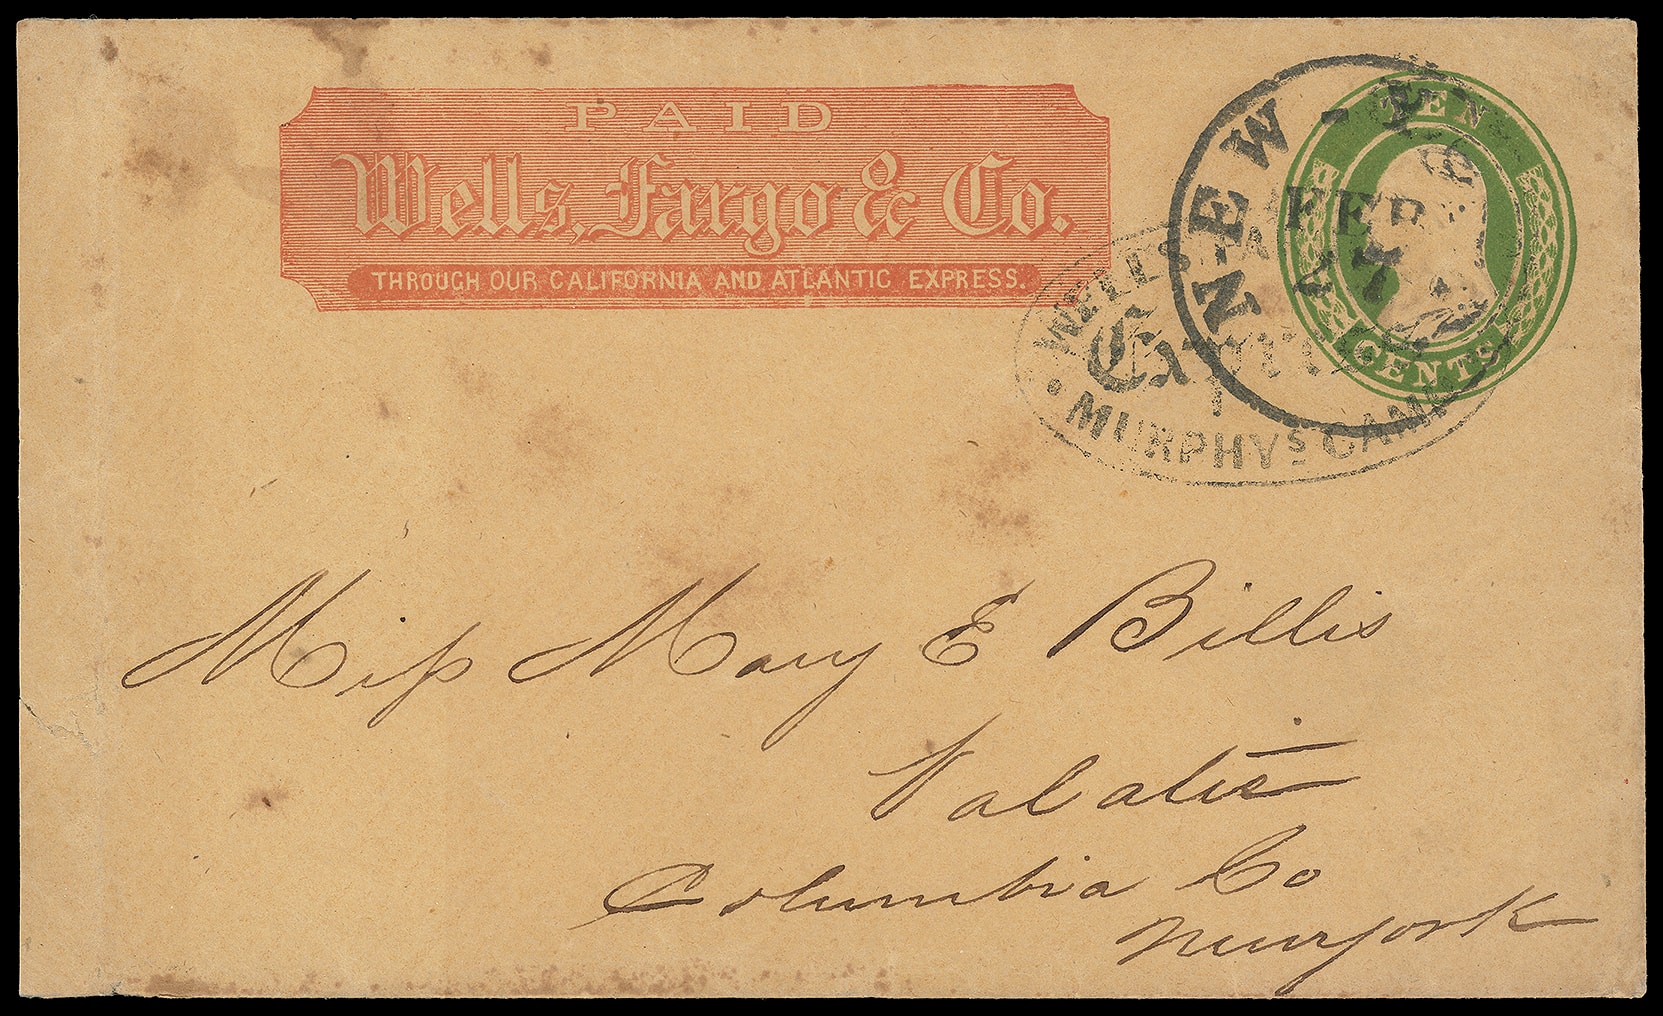 PAID
Wells, Fargo & Co.
THROUGH OUR CALIFORNIA AND ATLANTIC EXPRESS.
TEN
CENTS
NEW-
FEB
27
WELLS
Express
MURPHYS CAMP
Miss Mary E Billis
Valatie
Columbia Co
Newyork